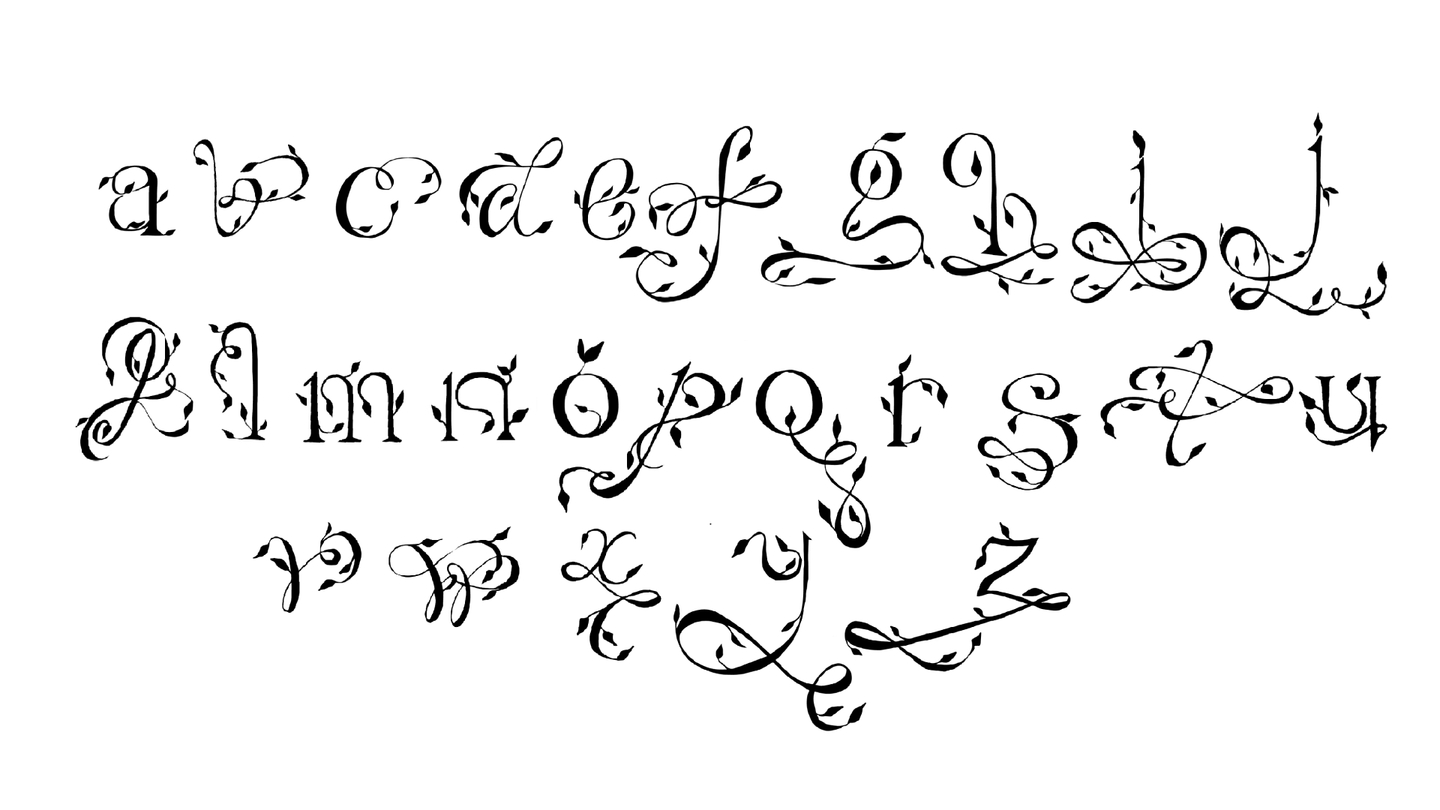 a b c d e f g h i j
k l m n o p q r s t u
v w x y z